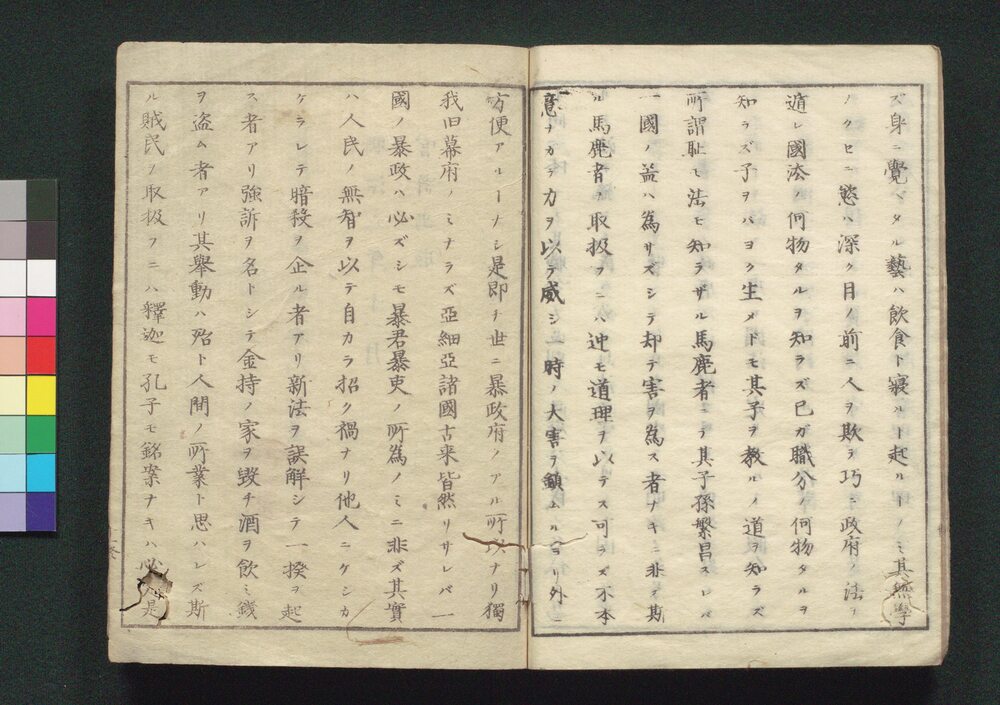 ズ身ニ覺ヘタル藝ハ飲食ト寢ルト起ルトノミ其無學
ノクセニ慾ハ深ク目ノ前ニ人ヲ欺テ巧ニ政府ノ法ヲ
遁レ國法ノ何物タルヲ知ラズ己ガ職分ノ何物タルヲ
知ラズ子ヲバヨク生メトモ其子ヲ教ルノ道ヲ知ラズ
所謂恥モ法モ知ラザル馬鹿者ニテ其子孫繁昌スレバ
一國ノ益ハ為サズシテ却テ害ヲ為ス者ナキニ非ズ斯
ル馬鹿者ヲ取扱フニハ迚モ道理ヲ以テス可ラズ不本
意ナカラ力ヲ以テ威シ一時ノ大害ヲ鎮ムルヨリ外ニ
方便アルㄱナシ是即チ世ニ暴政府ノアル所以ナリ獨
我旧幕府ノミナラズ亞細亞諸國古来皆然リサレバ一
國ノ暴政ハ必ズシモ暴君暴吏ノ所為ノミニ非ズ其實
ハ人民ノ無智ヲ以テ自カラ招ク禍ナリ他人ニケシカ
ケラレテ暗殺ヲ企ル者アリ新法ヲ誤解シテ一揆ヲ起
ス者アリ強訴ヲ名トシテ金持ノ家ヲ毀チ酒ヲ飲ミ錢
ヲ盗ム者アリ其舉動ハ殆ト人間ノ所業ト思ハレズ斯
ル賊民ヲ取扱フニハ釋迦モ孔子モ銘案ナキハ必定是